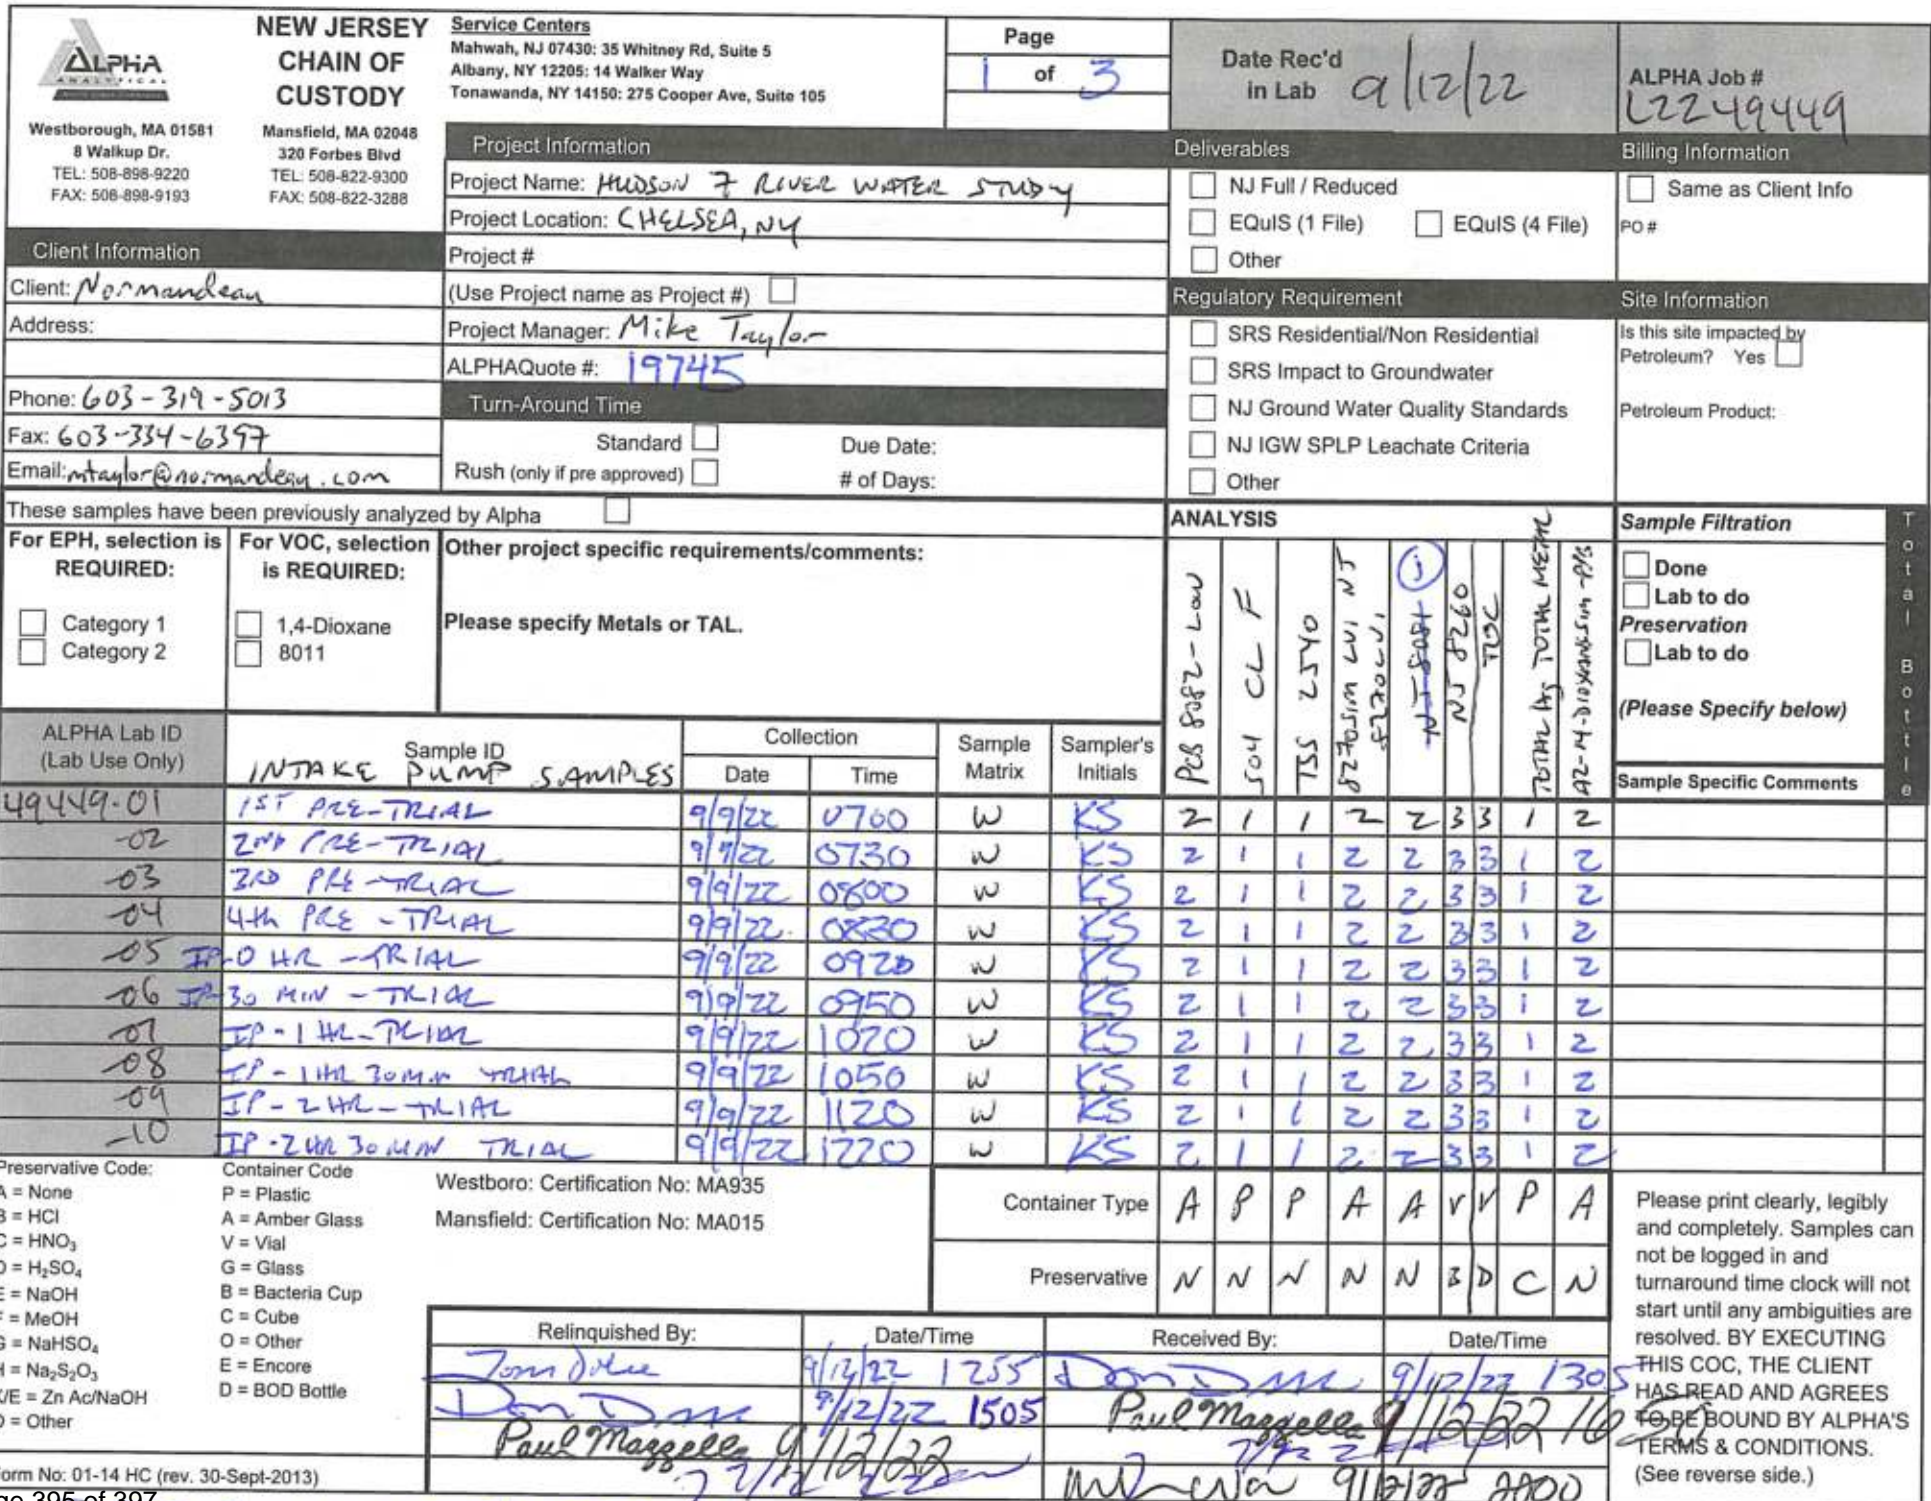 ALPHA
ANALYTICAL
NEW JERSEY
CHAIN OF
CUSTODY
Westborough, MA 01581
8 Walkup Dr.
TEL: 508-898-9220
FAX: 508-898-9193
Mansfield, MA 02048
320 Forbes Blvd
TEL: 508-822-9300
FAX: 508-822-3288
Service Centers
Mahwah, NJ 07430: 35 Whitney Rd, Suite 5
Albany, NY 12205: 14 Walker Way
Tonawanda, NY 14150: 275 Cooper Ave, Suite 105
Page
1 of 3
Date Rec'd
in Lab 9/12/22
ALPHA Job #
L2249449
Client Information
Client: Normandeau
Address:
Phone: 603-319-5013
Fax: 603-334-6397
Email: mtaylor@normandeau.com
Project Information
Project Name: HUDSON 7 RIVER WATER STUDY
Project Location: CHELSEA, NY
Project #
(Use Project name as Project #)
Project Manager: Mike Taylor
ALPHAQuote #: 19745
Turn-Around Time
Standard Due Date:
Rush (only if pre approved) # of Days:
Deliverables
NJ Full / Reduced
EQuIS (1 File) EQuIS (4 File)
Other
Regulatory Requirement
SRS Residential/Non Residential
SRS Impact to Groundwater
NJ Ground Water Quality Standards
NJ IGW SPLP Leachate Criteria
Other
Billing Information
Same as Client Info
PO #
Site Information
Is this site impacted by
Petroleum? Yes
Petroleum Product:
These samples have been previously analyzed by Alpha
For EPH, selection is
REQUIRED:
Category 1
Category 2
For VOC, selection
is REQUIRED:
1,4-Dioxane
8011
Other project specific requirements/comments:
Please specify Metals or TAL.
ANALYSIS
PCB 8082-LOW
SO4 CL F
TSS 2540
8270SIM LVI NJ
8270LVI
NJ 8081
NJ 8260
TOC
TOTAL Hg TOTAL METAL
A2-14-DIOXANESIM-PPB
Sample Filtration
Done
Lab to do
Preservation
Lab to do
(Please Specify below)
Total Bottle
ALPHA Lab ID
(Lab Use Only)
Sample ID
INTAKE PUMP SAMPLES
Collection
Date Time
Sample
Matrix
Sampler's
Initials
Sample Specific Comments
49449-01 1ST PRE-TRIAL 9/9/22 0700 W KS 2 1 1 2 2 3 3 1 2
-02 2ND PRE-TRIAL 9/9/22 0730 W KS 2 1 1 2 2 3 3 1 2
-03 3RD PRE-TRIAL 9/9/22 0800 W KS 2 1 1 2 2 3 3 1 2
-04 4th PRE-TRIAL 9/9/22 0830 W KS 2 1 1 2 2 3 3 1 2
-05 IP-0 HR-TRIAL 9/9/22 0920 W KS 2 1 1 2 2 3 3 1 2
-06 IP-30 MIN-TRIAL 9/9/22 0950 W KS 2 1 1 2 2 3 3 1 2
-07 IP-1 HR-TRIAL 9/9/22 1020 W KS 2 1 1 2 2 3 3 1 2
-08 IP-1HR 30MIN TRIAL 9/9/22 1050 W KS 2 1 1 2 2 3 3 1 2
-09 IP-2 HR-TRIAL 9/9/22 1120 W KS 2 1 1 2 2 3 3 1 2
-10 IP-2HR 30MIN TRIAL 9/9/22 1220 W KS 2 1 1 2 2 3 3 1 2
Preservative Code:
A = None
B = HCl
C = HNO3
D = H2SO4
E = NaOH
F = MeOH
G = NaHSO4
H = Na2S2O3
K/E = Zn Ac/NaOH
O = Other
Container Code
P = Plastic
A = Amber Glass
V = Vial
G = Glass
B = Bacteria Cup
C = Cube
O = Other
E = Encore
D = BOD Bottle
Westboro: Certification No: MA935
Mansfield: Certification No: MA015
Container Type A P P A A V V P A
Preservative N N N N N B D C N
Relinquished By: Date/Time Received By: Date/Time
9/12/22 1255 9/12/22 1305
9/12/22 1505 Paul Mazzella 9/12/22
Paul Mazzella 9/12/22
Please print clearly, legibly
and completely. Samples can
not be logged in and
turnaround time clock will not
start until any ambiguities are
resolved. BY EXECUTING
THIS COC, THE CLIENT
HAS READ AND AGREES
TO BE BOUND BY ALPHA'S
TERMS & CONDITIONS.
(See reverse side.)
Form No: 01-14 HC (rev. 30-Sept-2013)
395 of 397